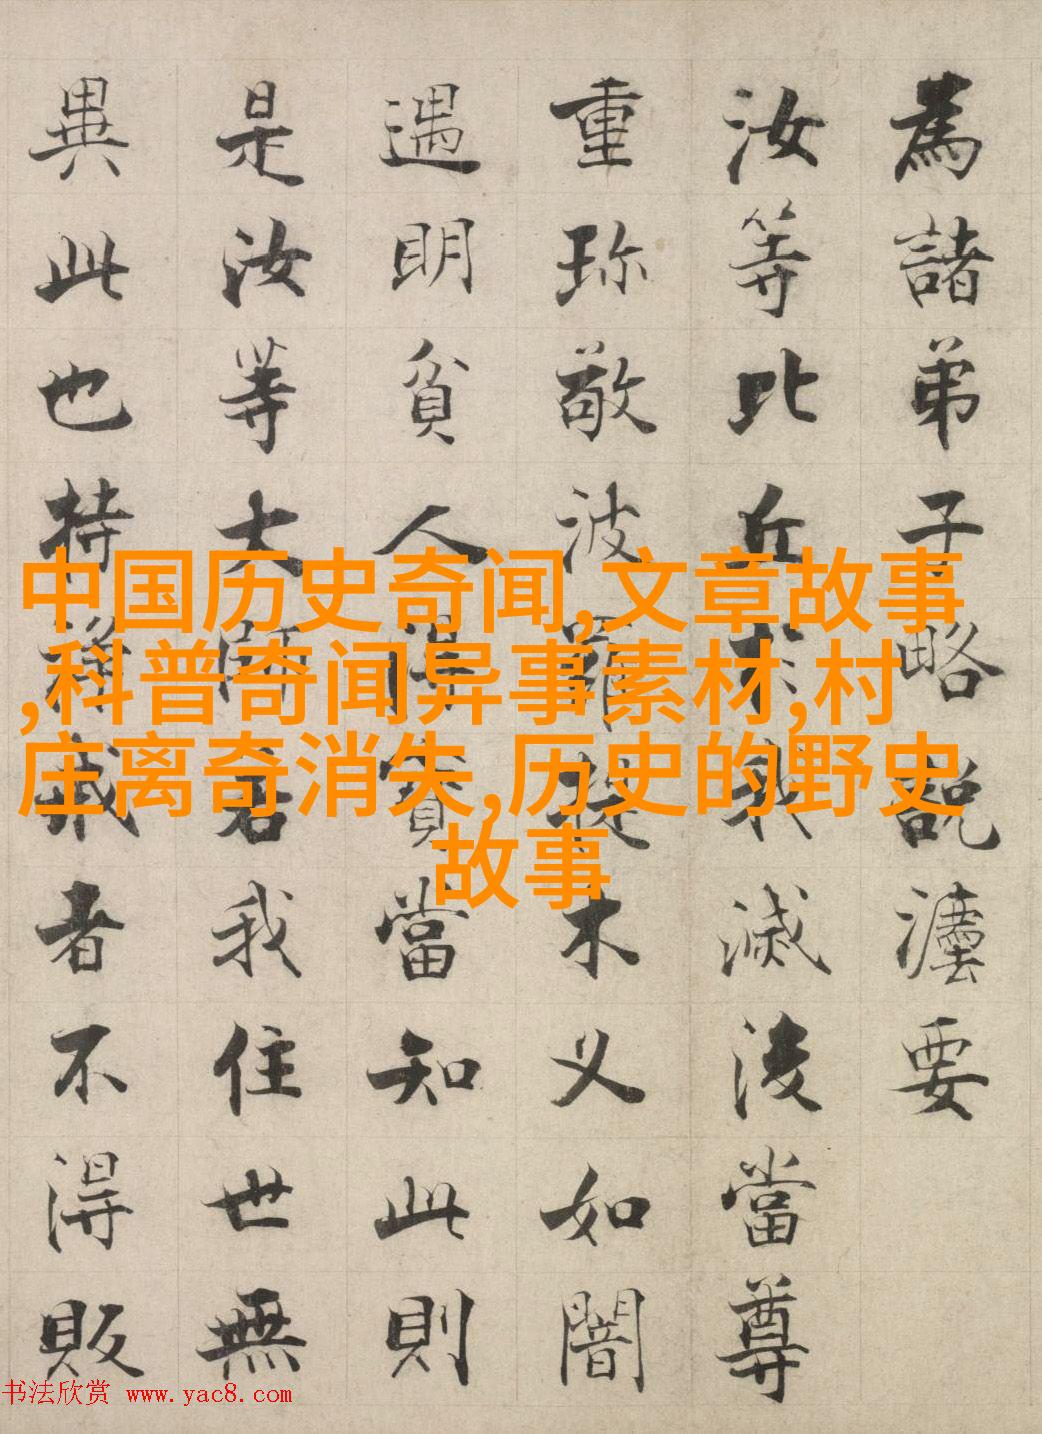 為諸弟子略說灋要
汝等比丘於我滅後當尊
重珎敬波羅提木义如闇
遇明貧人得寶當知此則
是汝等大師若我住世無
異此也持淨戒者不得販
中国历史奇闻,文章故事
,科普奇闻异事素材,村
庄离奇消失,历史的野史
故事
书法欣赏 www.yac8.com